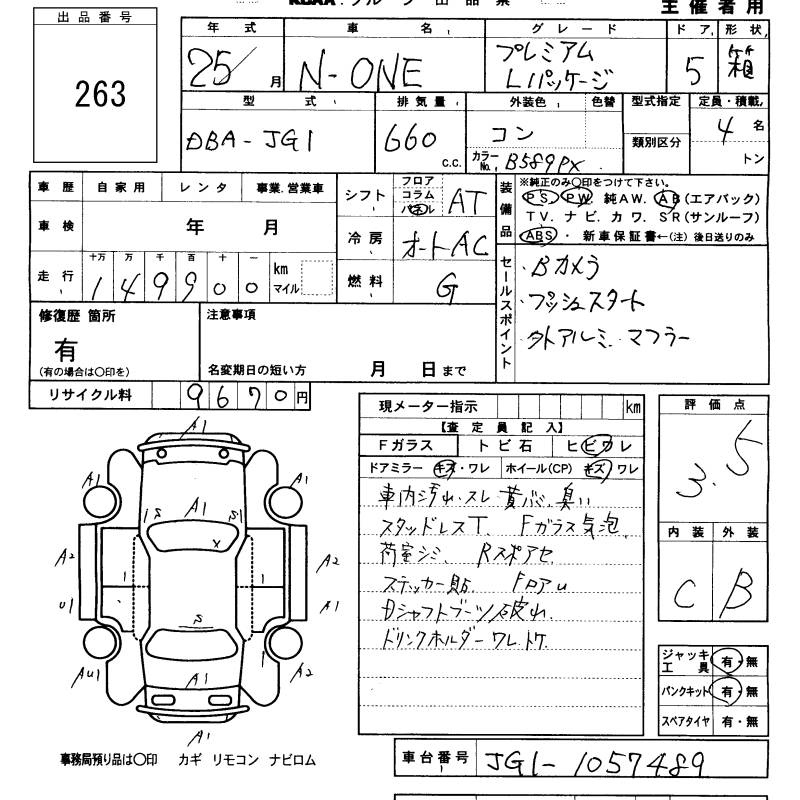 主催者用
出品番号
263
年式 車名 グレード ドア 形状
25/月 N-ONE プレミアム Lパッケージ 5 箱
型式 排気量 外装色 色替 型式指定 定員・積載
DBA-JG1 660 c.c. コン 類別区分 4名
カラーNo. B589PX トン
車歴 自家用 レンタ 事業.営業車
車検 年 月
走行 十万 万 千 百 十 一 km マイル
149900
シフト フロア コラム パネル AT
冷房 オートAC
燃料 G
装備品 ※純正のみ○印をつけて下さい。
PS. PW. 純AW. AB(エアバック)
TV. ナビ. カワ. SR(サンルーフ)
ABS・ 新車保証書←(注) 後日送りのみ
セールスポイント
・Bカメラ
・プッシュスタート
・外アルミ. マフラー
修復歴 箇所
有
(有の場合は○印を)
注意事項
名変期日の短い方 月 日まで
リサイクル料 9670円
現メーター指示 km
【査定員記入】
Fガラス トビ石 ヒビワレ
ドアミラー キズ・ワレ ホイール(CP) キズ ワレ
車内汚れ. スレ 黄バミ. 臭い
スタッドレスT. Fガラス気泡.
荷室シミ. Rスポアセ
ステッカー貼. FロアU
Dシャフトブーツ破れ.
ドリンクホルダーワレ.トケ.
評価点
3.5
内装 外装
C B
ジャッキ 工具 有・無
パンクキット 有・無
スペアタイヤ 有・無
A1
A1 A1
A1
S S1
A2 X A2
1 1
U1 A1
S
AU1 A1 A2
A1
事務局預り品は○印 カギ リモコン ナビロム
車台番号 JG1-1057489